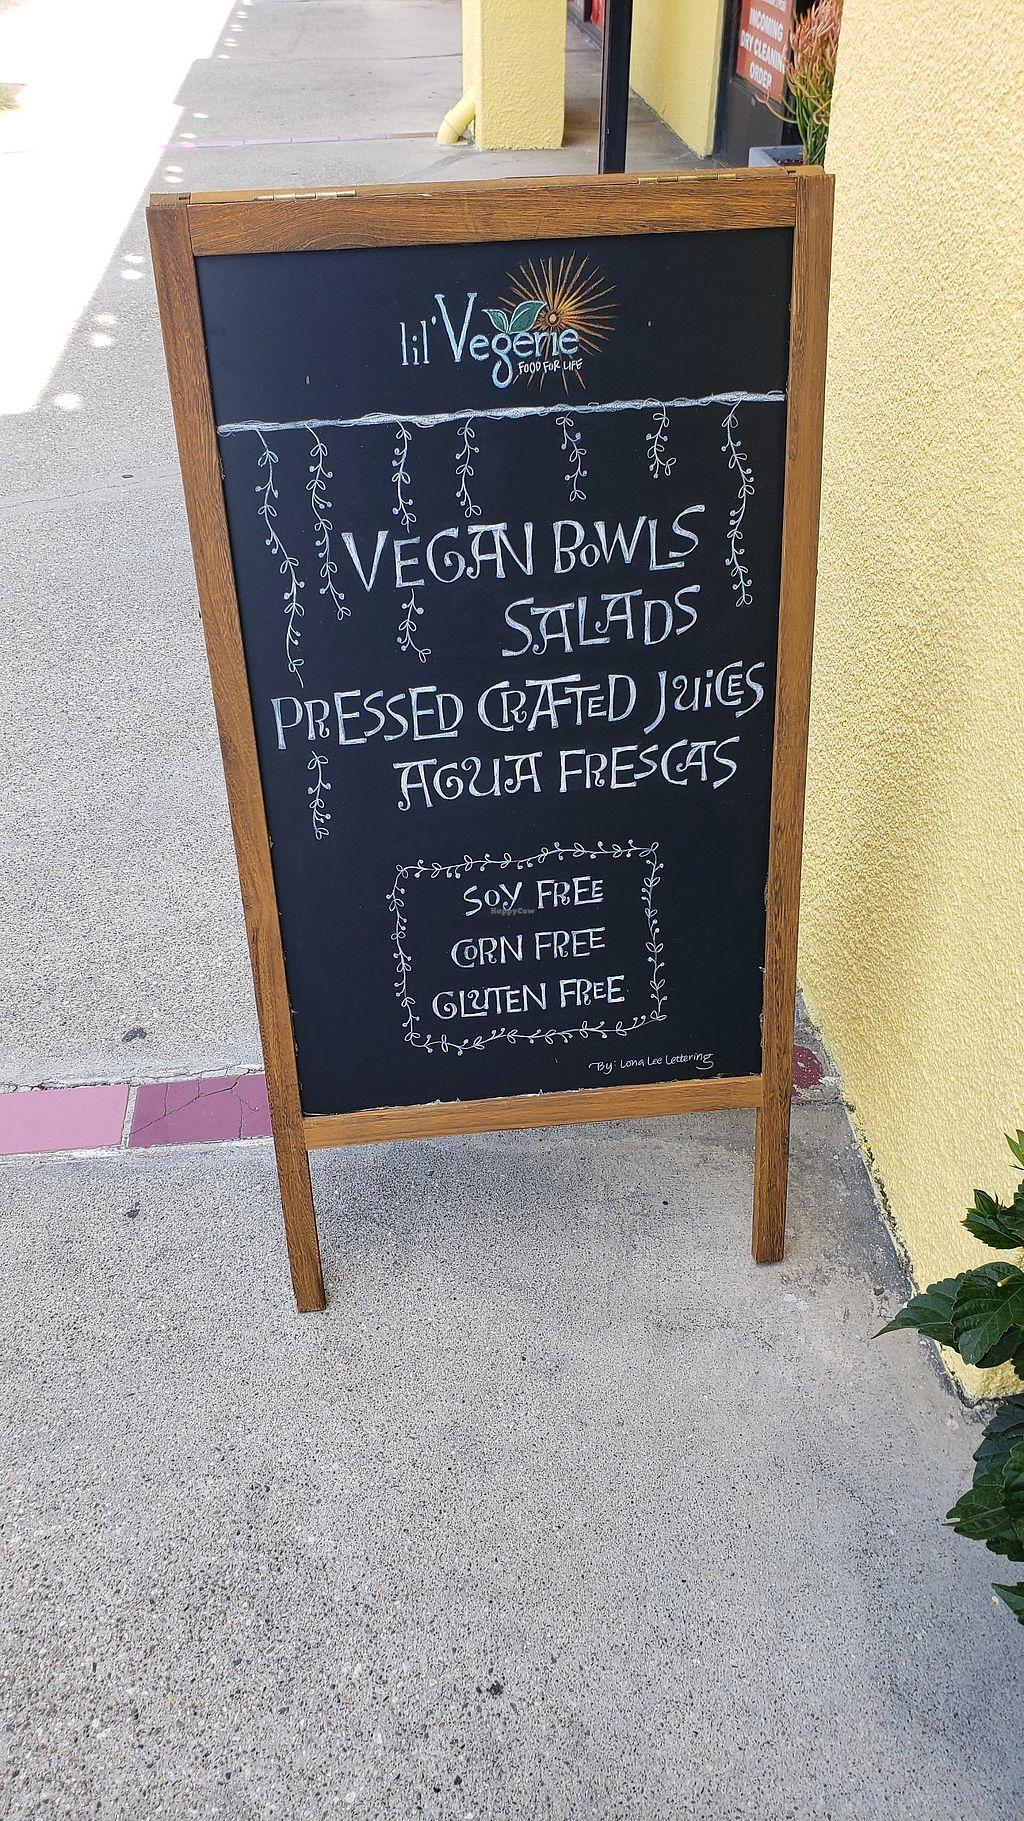 INCOMING
DRY CLEANING
ORDER
lil' Vegerie
FOOD FOR LIFE
VEGAN BOWLS
SALADS
PRESSED CRAFTED JUICES
AGUA FRESCAS
SOY FREE
HappyCow
CORN FREE
GLUTEN FREE
By: Lona Lee Lettering